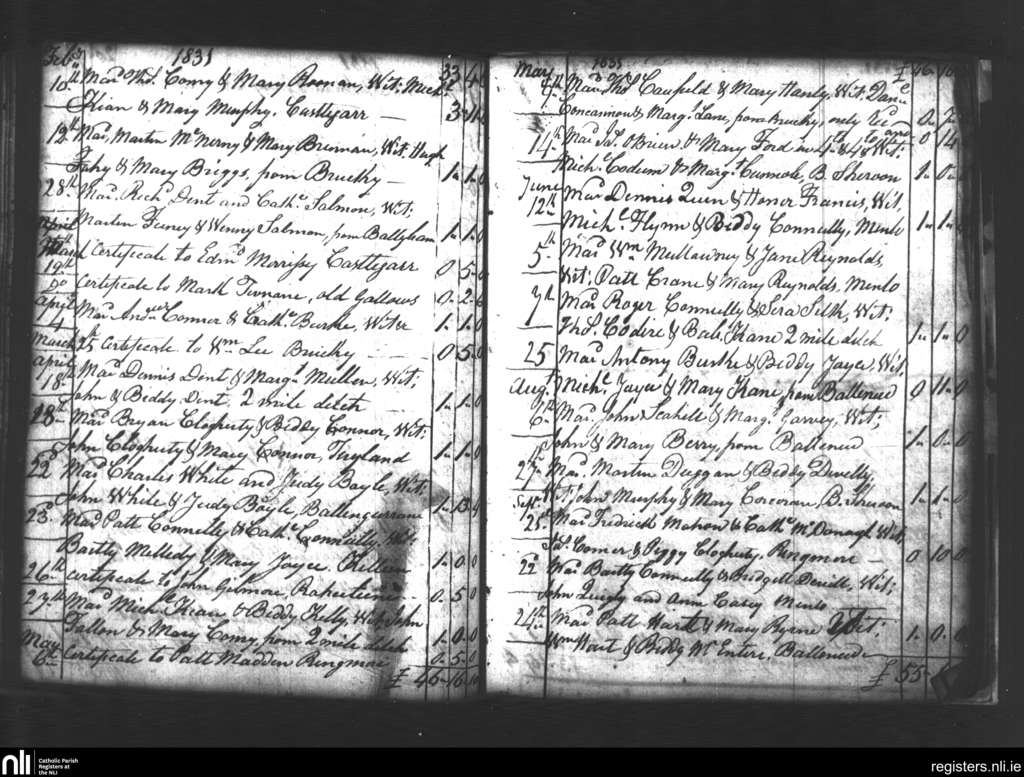 Feby 1831 33 4
10th Mard Thos. Comy & Mary Roonan, Wit; Michl
Kian & Mary Murphy. Castlegarr — 3
12th Mard Martin McNerny & Mary Brennan, Wit; Hugh
Fahy & Mary Briggs, from Brucky — 1 1 0
28th Mard Richd Dent and Cathe Salmon, Wit;
Martin Feeney & Winny Salmon, from Ballybaan 1 1 0
March Certificate to Edmd Morrissy Castlegarr 0 5 0
19th Do Certificate to Mark Tunane, old Gallows 0 2 6
April Mard Andrew Connor & Cathe Burke, Witr
14 1 1 0
March 25 Certificate to Wm Lee Brucky — 0 5 0
April Mard Dennis Dent & Margt Mullen, Wit;
18th John & Biddy Dent, 2 mile ditch 1 1 0
28th Mard Bryan Cloghurty & Biddy Connor, Wit;
John Cloghurty & Mary Connor, Turyland 1 1 0
22 Mard Charles White and Judy Boyle, Wit;
John White & Judy Boyle, Ballengurrane 1 13
23d Mard Patt Connelly & Cathe Connelly, Wit.
Bartly Melledy & Mary Joyce, Killeen 1 0 0
26th Certificate to John Gilmore, Rahusteene 0 5 0
27th Mard Michl Kean & Biddy Kelly, Wit; John
Fallon & Mary Comy, from 2 mile ditch 1 0 0
May Certificate to Patt Madden Ringmore 0 5 0
6th £ 46 16 10
May 1831 £ 46 16
4th Mard Thos Caufield & Mary Hardy, Wit. Danl
Concannon & Margt Lane, from Brucky, only recd
14th Mard Js. OBrien & Mary Ford in 4th & 4th Wit; 0 14
Michl Codum & Margt Cunniole, B Sheroon 1 0 0
June Mard Dennis Quin & Honor Francis, Wit,
12th Michl Flynn & Biddy Connelly, Menlo 1 1 0
5th Mard Wm Mullowney & Jane Reynolds,
Wit, Patt Crane & Mary Reynolds, Menlo
7th Mard Roger Connelly & Sera Silk, Wit;
Thos. Codire & Bab. Kane 2 mile ditch 1 1 0
25 Mard Antony Burke & Biddy Joyce, Wit.
Augt Michl Joyce & Mary Kane, from Balleneud 0 11 0
6th Mard John Leahell & Margt Garvey, Wit;
John & Mary Berry, from Balleneud 1 0 0
27th Mard Martin Duggan & Biddy Divelly,
Wit, John Murphy & Mary Corcoran, B. Sheroon 1 1 0
Sept Mard Fredrick Mahon & Cathe McDonagh Wit,
Js. Comer & Peggy Cloghurty, Ringmore — 0 10 0
22 Mard Bartly Connelly & Bridgett Deville, Wit;
John Quigly and Ann Casey Menlo
24th Mard Patt Hart & Mary Byrne Wit; 1 0 0
Wm Hart & Biddy McEntire, Balleneud —
£ 55
nli Catholic Parish
Registers at
the NLI
registers.nli.ie